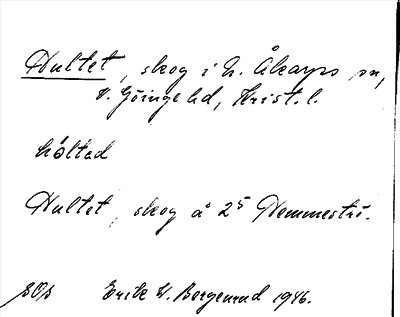 Hultet, skog i N. Åkarps sn,
V. Göinge hd, Krist. l.
hóltad
Hultet, skog å 25 Hemmestr.
SOS Erik W. Bergenrud 1946.